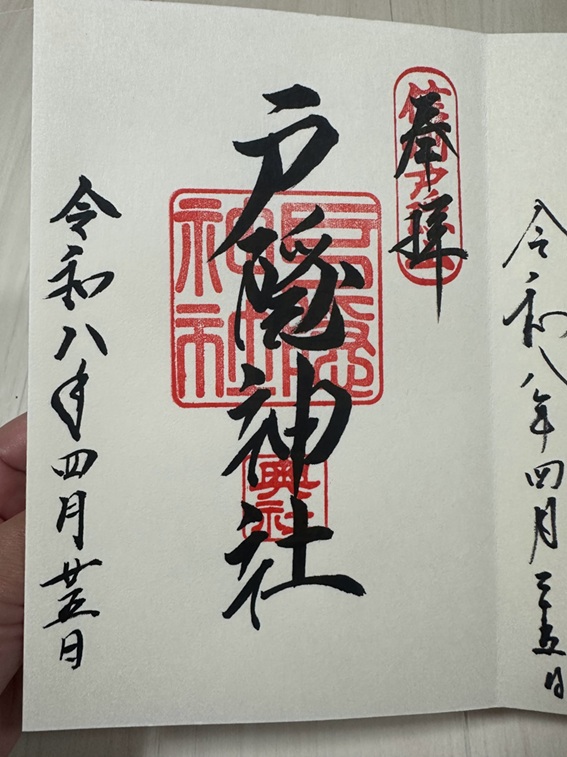 奉拝
戸隠神社
戸隠神社
奥社
令和八年四月廿五日
令和八年四月二十五日